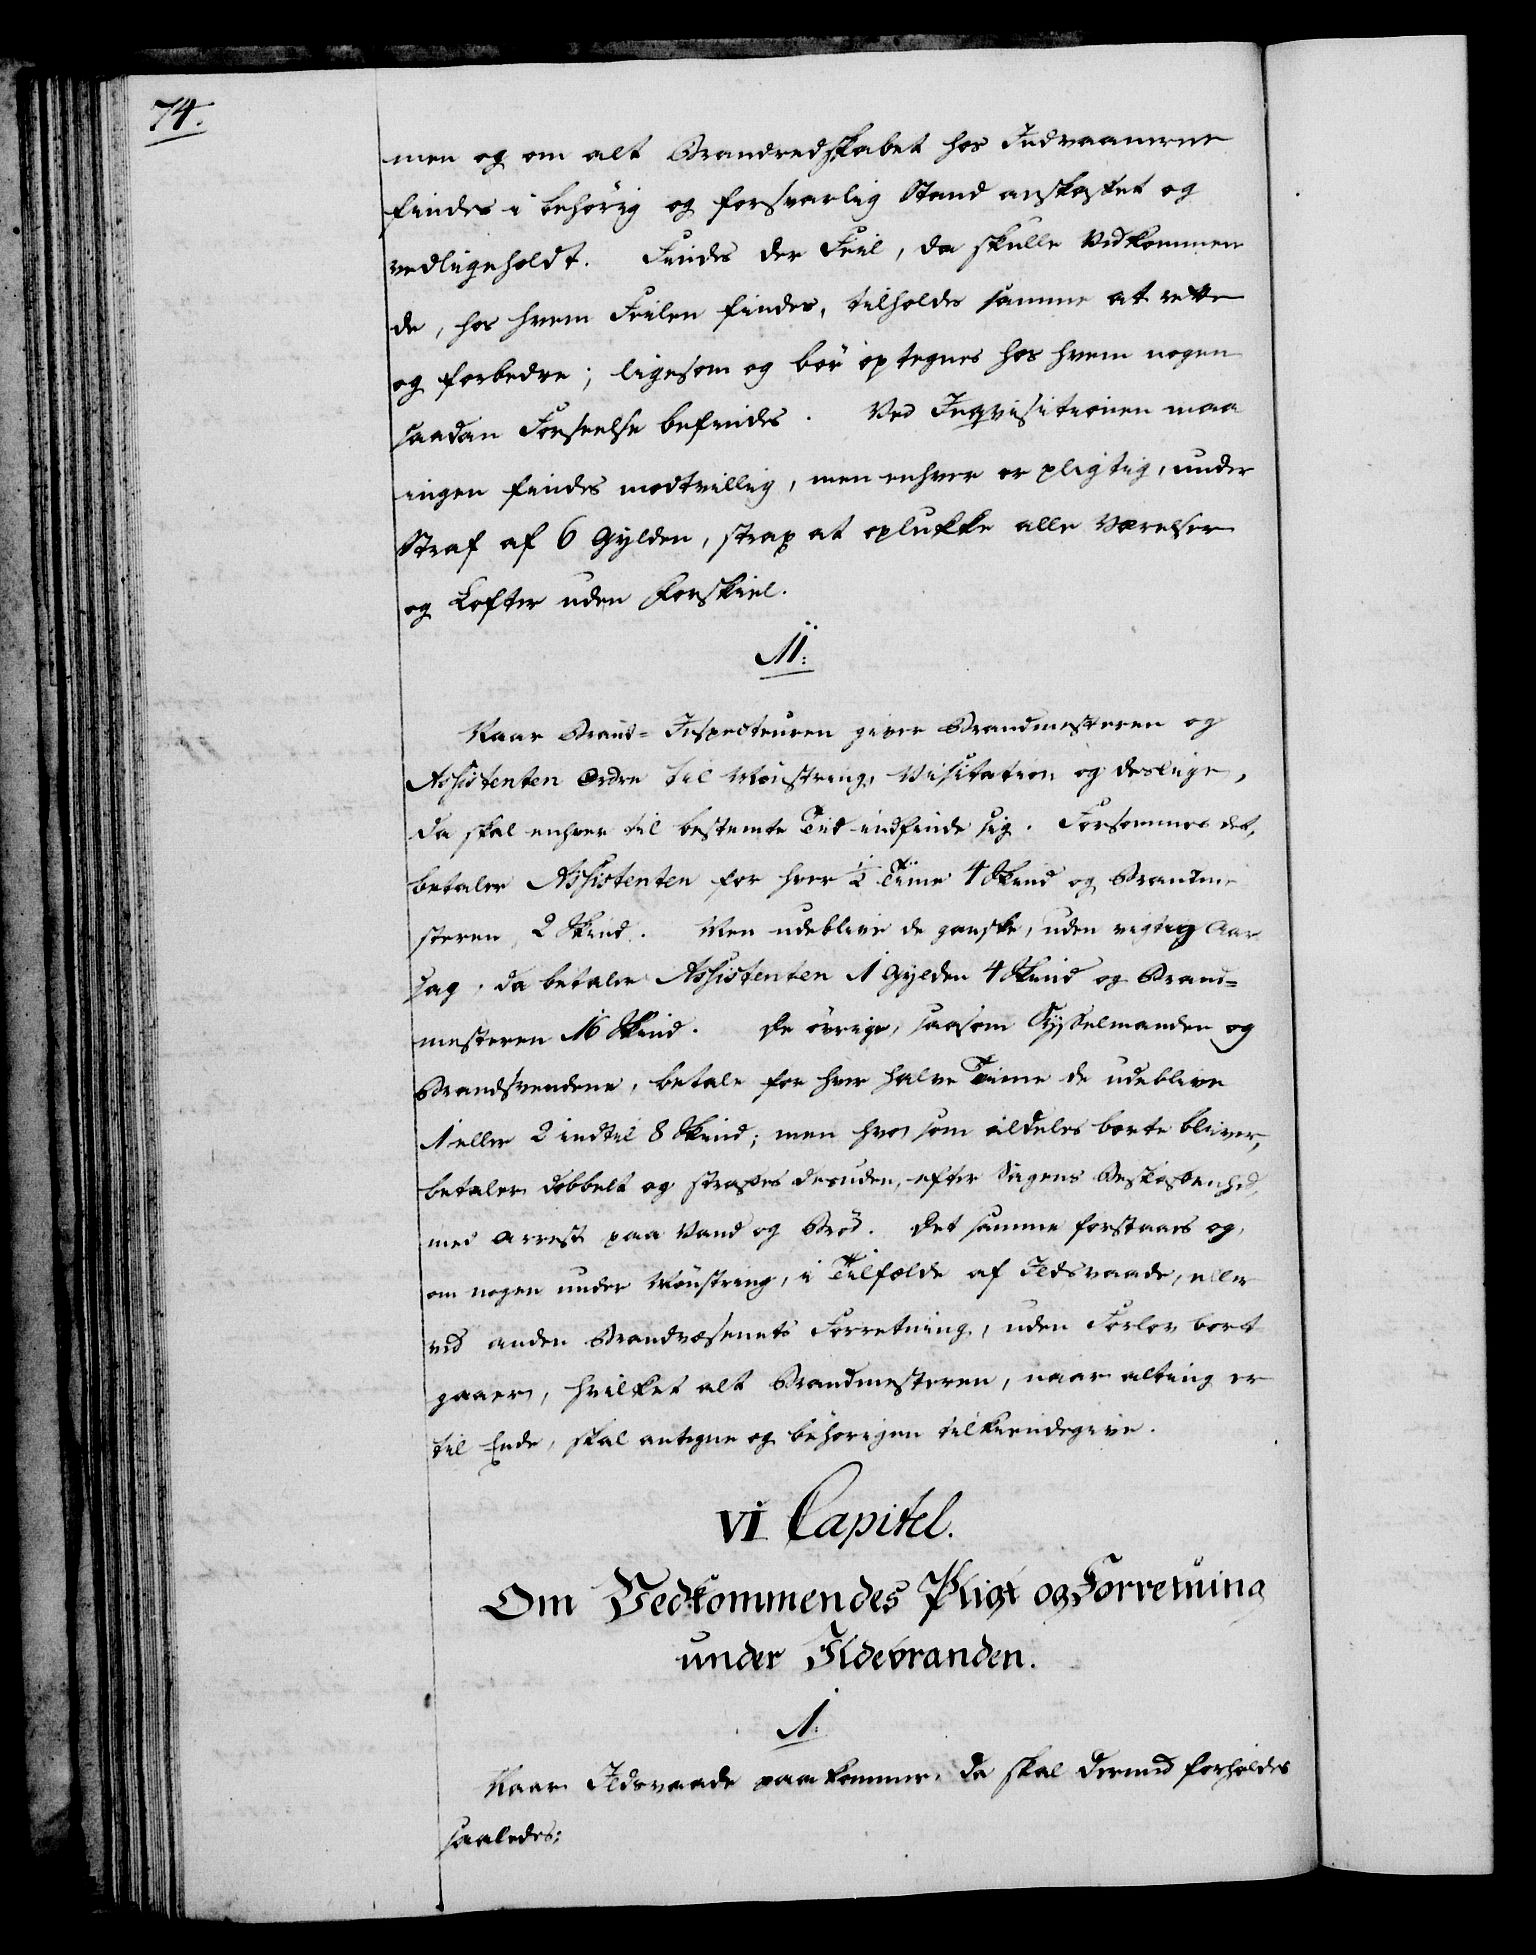 74.
men og om alt Brandredskabet hos Indvaanerne
findes i behörig og forsvarlig Stand anskaffet og
vedligeholdt. Findes der Feil, da skulle Vedkommen
de, hos hvem Feilen findes, tilholdes samme at rette
og forbedre; ligesom og bör optegnes hos hvem nogen
saadan Forseelse befindes. Ved Inqvisitionen maa
ingen findes modtvillig, men enhver er pligtig, under
Straf af 6 Gylden, strax at oplukke alle Værelser
og Lofter uden Forskiel.
11:
Naar Brand-Inspecteuren giver Brandmesteren og
Assistenten Ordre til Mönstring, Visitation og deslige,
da skal enhver til bestemte Tid indfinde sig. Forsömmes det,
betaler Assistenten for hver ½ Time 4 Skind og Brandme
steren 2 Skind. Men udeblive de ganske, uden vigtig Aar
sag, da betaler Assistenten 1 Gylden 4 Skind og Brand-
mesteren 16 Skind. De övrige, saasom Sysselmanden og
Brandsvendene, betale for hver halve Time de udeblive
1 eller 2 indtil 8 Skind; men hvo som aldeles borte bliver,
betaler dobbelt og straffes desuden, efter Sagens Beskaffenhed,
med Arrest paa Vand og Bröd. Det samme forstaaes og,
om nogen under Mönstring, i Tilfælde af Ildsvaade, eller
ved anden Brandvæsenets Forretning, uden Forlov bort
gaaer, hvilket alt Brandmesteren, naar alting er
til Ende, skal antegne og behörigen tilkiendegive.
VI Capitel.
Om Vedkommendes Pligt og Forretning
under Ildebranden.
1.
Naar Ildsvaade paakommer, da skal dermed forholdes
saaledes: